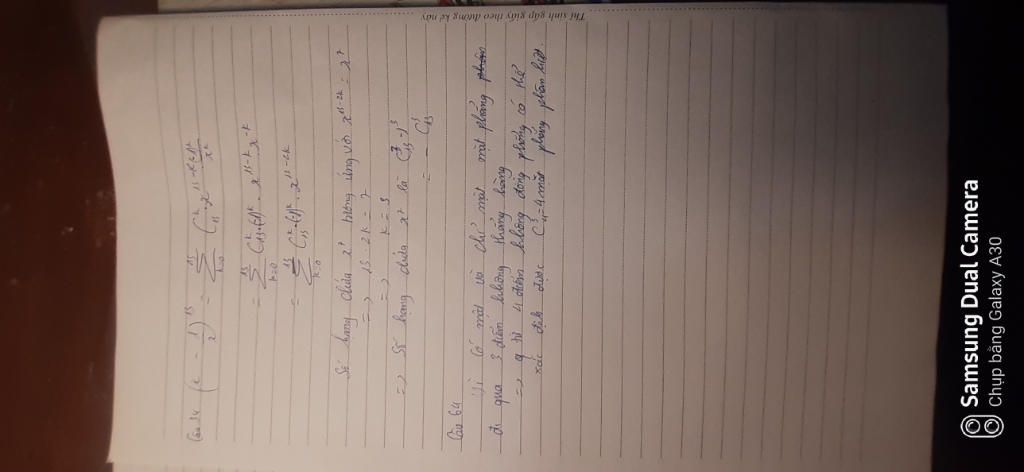 Thí sinh gấp giấy theo đường kẻ này
Câu 34 (x - 1/x)^13 = Σ_{k=0}^{13} C_13^k . x^{13-k} (-1)^k/x^k
= Σ_{k=0}^{13} C_13^k . (-1)^k . x^{13-k} . x^{-k}
= Σ_{k=0}^{13} C_13^k . (-1)^k . x^{13-2k}
Số hạng chứa x^7 tương ứng với x^{13-2k} = x^7
=> 13 - 2k = 7
=> k = 3
=> Số hạng chứa x^7 là C_13^3 . -1^3
= - C_13^3
Câu 64
Vì có một và chỉ một mặt phẳng
đi qua 3 điểm không thẳng hàng
=> từ 4 điểm không đồng phẳng có thể
xác định được C_4^3 = 4 mặt phẳng phân biệt.
Samsung Dual Camera
Chụp bằng Galaxy A30